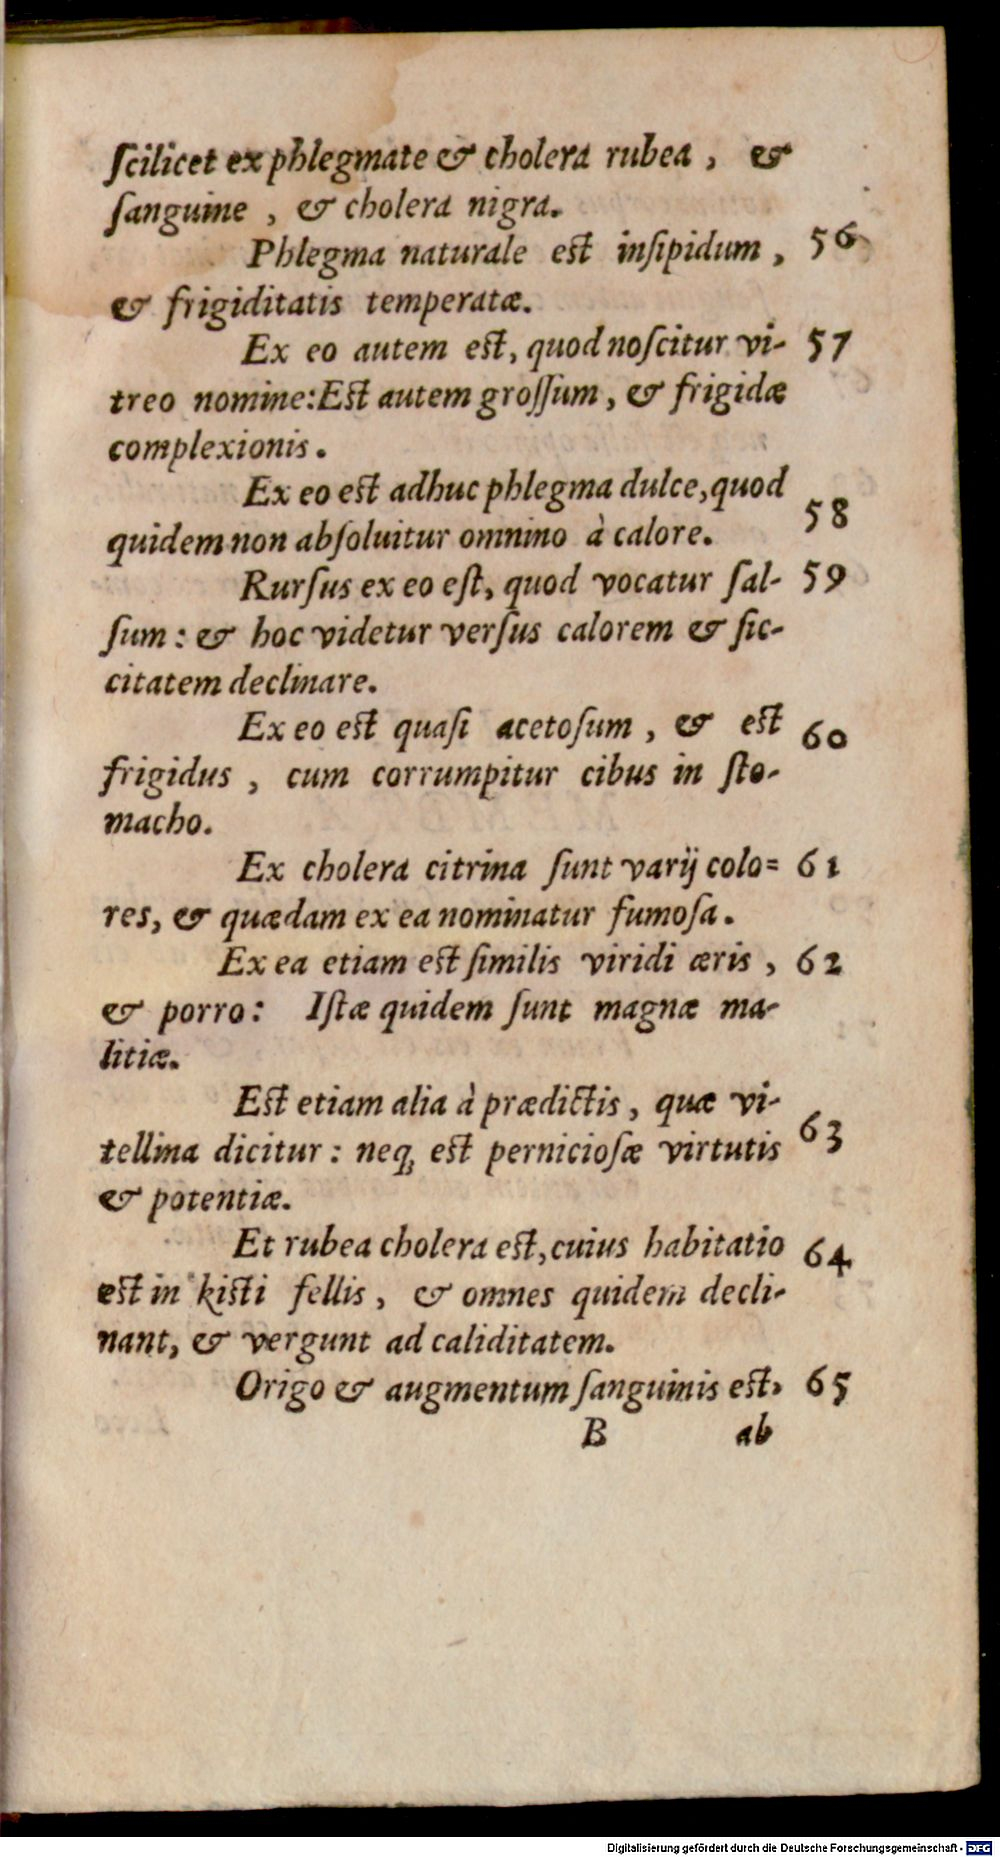 ſcilicet ex phlegmate & cholera rubea, &
ſanguine, & cholera nigra.
Phlegma naturale est inſipidum, 56
& frigiditatis temperatæ.
Ex eo autem est, quod noſcitur vi- 57
treo nomine: Est autem groſſum, & frigidæ
complexionis.
Ex eo est adhuc phlegma dulce, quod
quidem non abſoluitur omnino à calore. 58
Rurſus ex eo eſt, quod vocatur ſal- 59
ſum: & hoc videtur verſus calorem & ſic-
citatem declinare.
Ex eo est quaſi acetoſum, & est 60
frigidus, cum corrumpitur cibus in ſto-
macho.
Ex cholera citrina ſunt varij colo= 61
res, & quædam ex ea nominatur fumoſa.
Ex ea etiam est ſimilis viridi æris, 62
& porro: Iſtæ quidem ſunt magnæ ma-
litiæ.
Est etiam alia à prædictis, quæ vi-
tellina dicitur: neq; est pernicioſæ virtutis 63
& potentiæ.
Et rubea cholera est, cuius habitatio 64
est in kisti fellis, & omnes quidem decli-
nant, & vergunt ad caliditatem.
Origo & augmentum ſanguinis est, 65
B ab
Digitalisierung gefördert durch die Deutsche Forschungsgemeinschaft - DFG